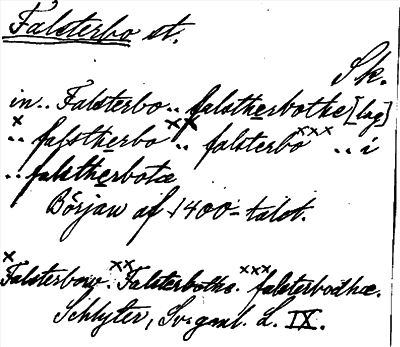 Falsterbo st.
Sk.
in.. Falsterbo.. falstherbothe [lag]
x xx xxx
.. falstherbo .. falsterbo .. i
.. falstherbotæ
Början af 1400-talet.
x xx xxx
Falsterbow. Falsterbothe. falsterbodhæ.
Schlyter, Sv. gml. L. IX.